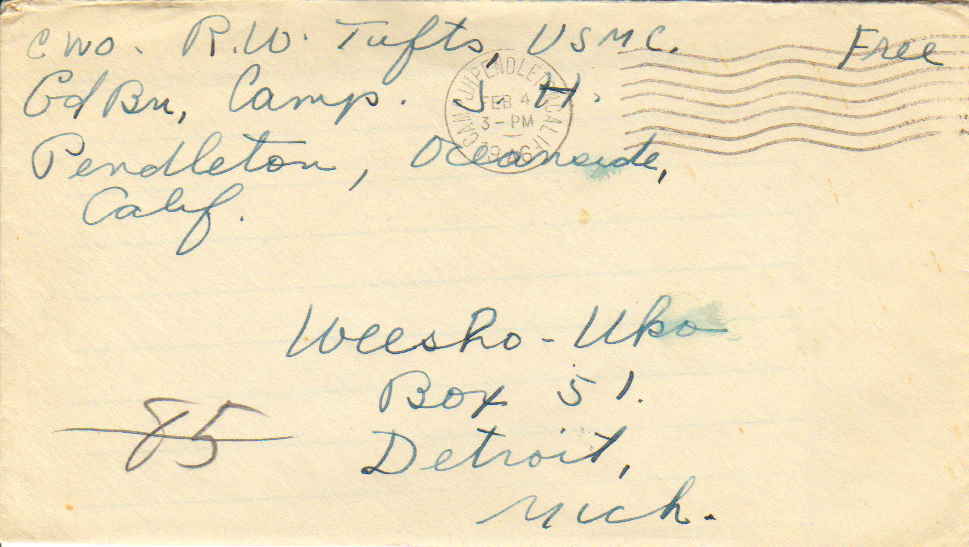 CWO. R.W. Tufts, USMC. Free
Gd Bn, Camp. J. H.
Pendleton, Oceanside,
Calif.
FEB 4
3-PM
1946
Weesho-Uko
Box 51.
Detroit,
Mich.
85